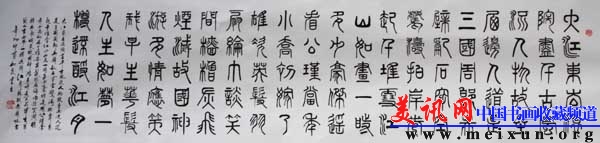 大江東去浪
淘盡千古風
流人物故壘
西邊人道是
三國周郎赤
壁亂石穿空
驚濤拍岸捲
起千堆雪江
山如畫一時
多少豪傑遙
想公瑾當年
小喬初嫁了
雄姿英發羽
扇綸巾談笑
間檣櫓灰飛
煙滅故國神
遊多情應笑
我早生華髮
人生如夢一
樽還酹江月
美讯网
中国书画收藏频道
www.meixun.org